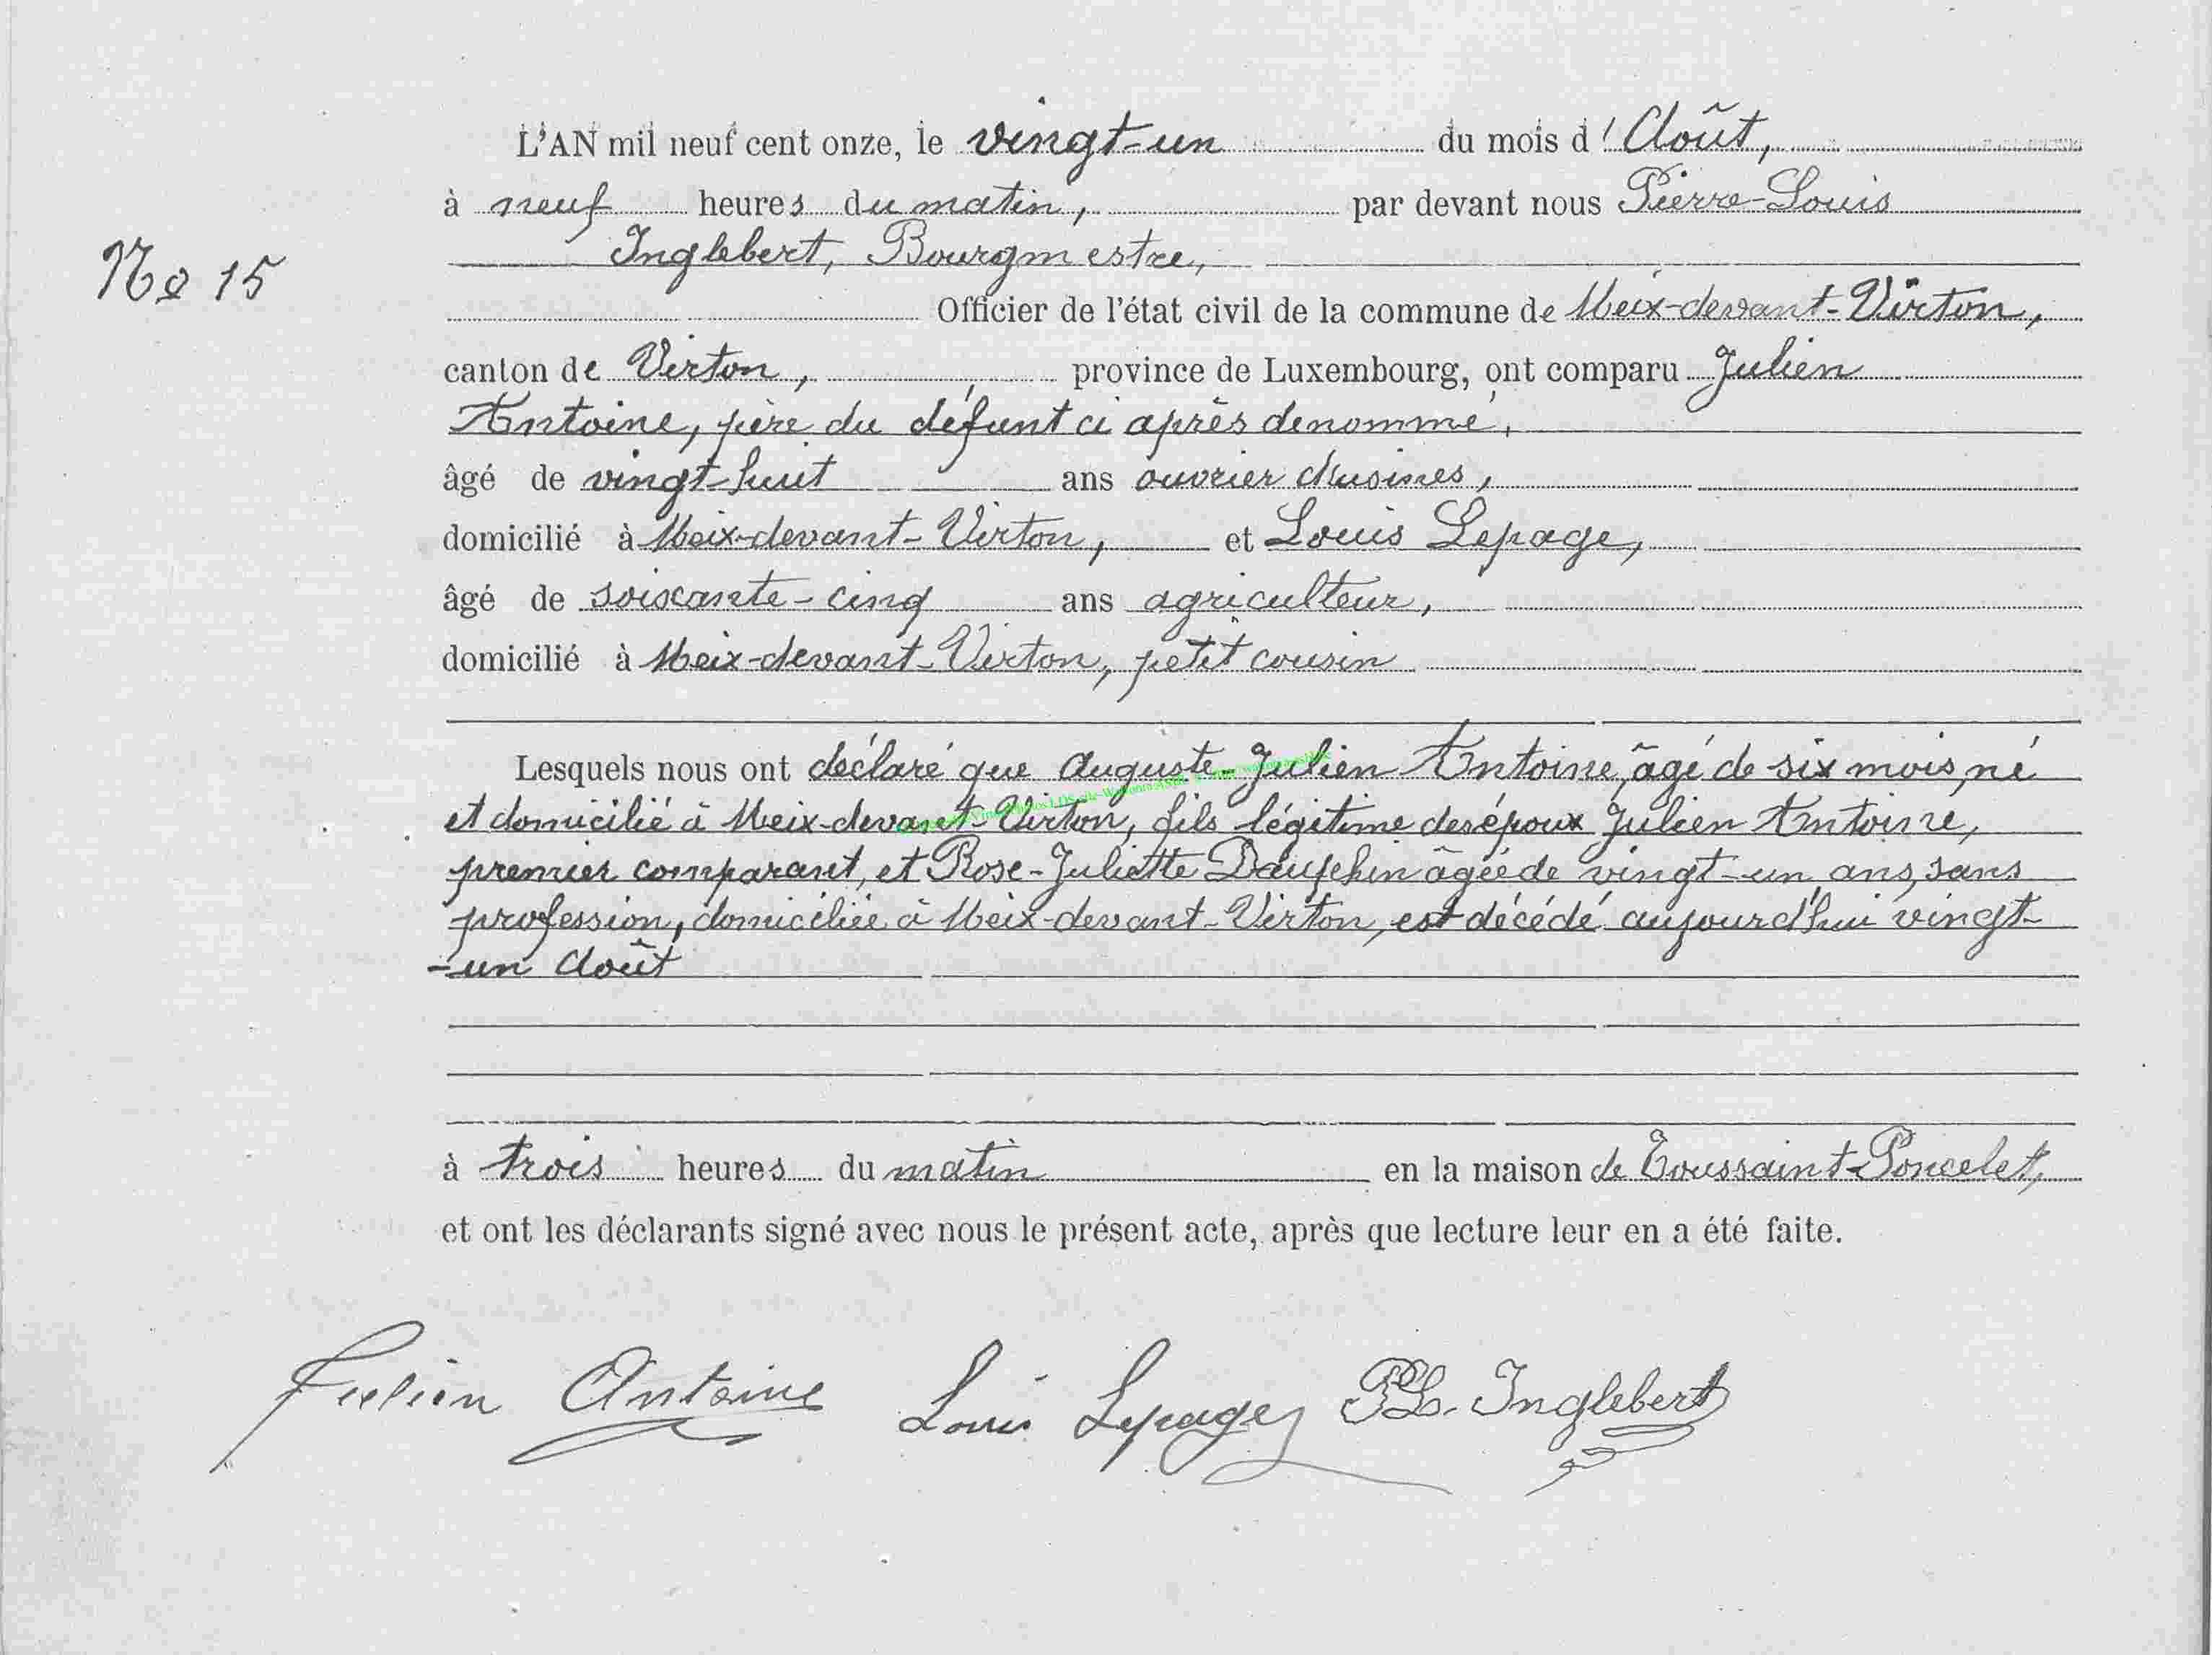 L'AN mil neuf cent onze, le vingt-un du mois d'Août,
à neuf heures du matin, par devant nous Pierre-Louis
Inglebert, Bourgmestre,
No 15
Officier de l'état civil de la commune de Meix-devant-Virton,
canton de Virton, province de Luxembourg, ont comparu Julien
Antoine, père du défunt ci après denommé,
âgé de vingt-huit ans ouvrier d'usines,
domicilié à Meix-devant-Virton, et Louis Lepage,
âgé de soixante-cinq ans agriculteur,
domicilié à Meix-devant-Virton, petit cousin
Lesquels nous ont déclaré que Auguste Julien Antoine, âgé de six mois, né
et domicilié à Meix-devant-Virton, fils légitime des époux Julien Antoine,
premier comparant, et Rose-Juliette Dauphin âgée de vingt-un ans, sans
profession, domiciliée à Meix-devant-Virton, est décédé aujourd'hui vingt-
-un Août
à trois heures du matin en la maison de Toussaint-Poncelet,
et ont les déclarants signé avec nous le présent acte, après que lecture leur en a été faite.
Julien Antoine Louis Lepage PL. Inglebert